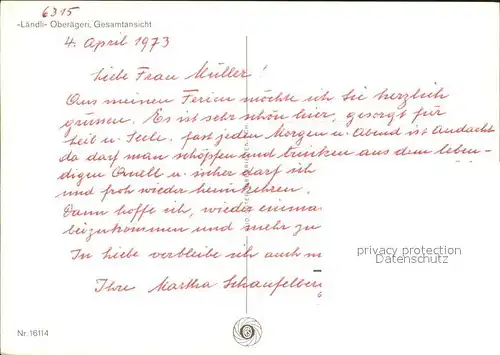 6315
-Ländli- Oberägeri, Gesamtansicht
4. April 1973
Liebe Frau Müller!
Aus meinen Ferien möchte ich Sie herzlich
grüssen. Es ist sehr schön hier, gesorgt für
Leib u. Seele. fast jeden Morgen u. Abend ist Andacht
da darf man schöpfen und trinken aus dem leben-
digen Quell u. sicher darf ich
und froh wieder heimkehren.
Dann hoffe ich, wieder einma
beizukommen und mehr zu
In Liebe verbleibe ich auch
Ihre Martha Schaufelber
privacy protection
www.ansichtskartenversand.com
Nr. 16114